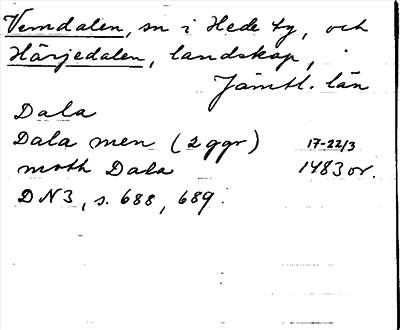 Vemdalen, sn i Hede tg, och
Härjedalen, landskap,
Jämtl. län
Dala
Dala men (2 ggr) 17-22/3
moth Dala 1483 or.
DN3, s. 688, 689.